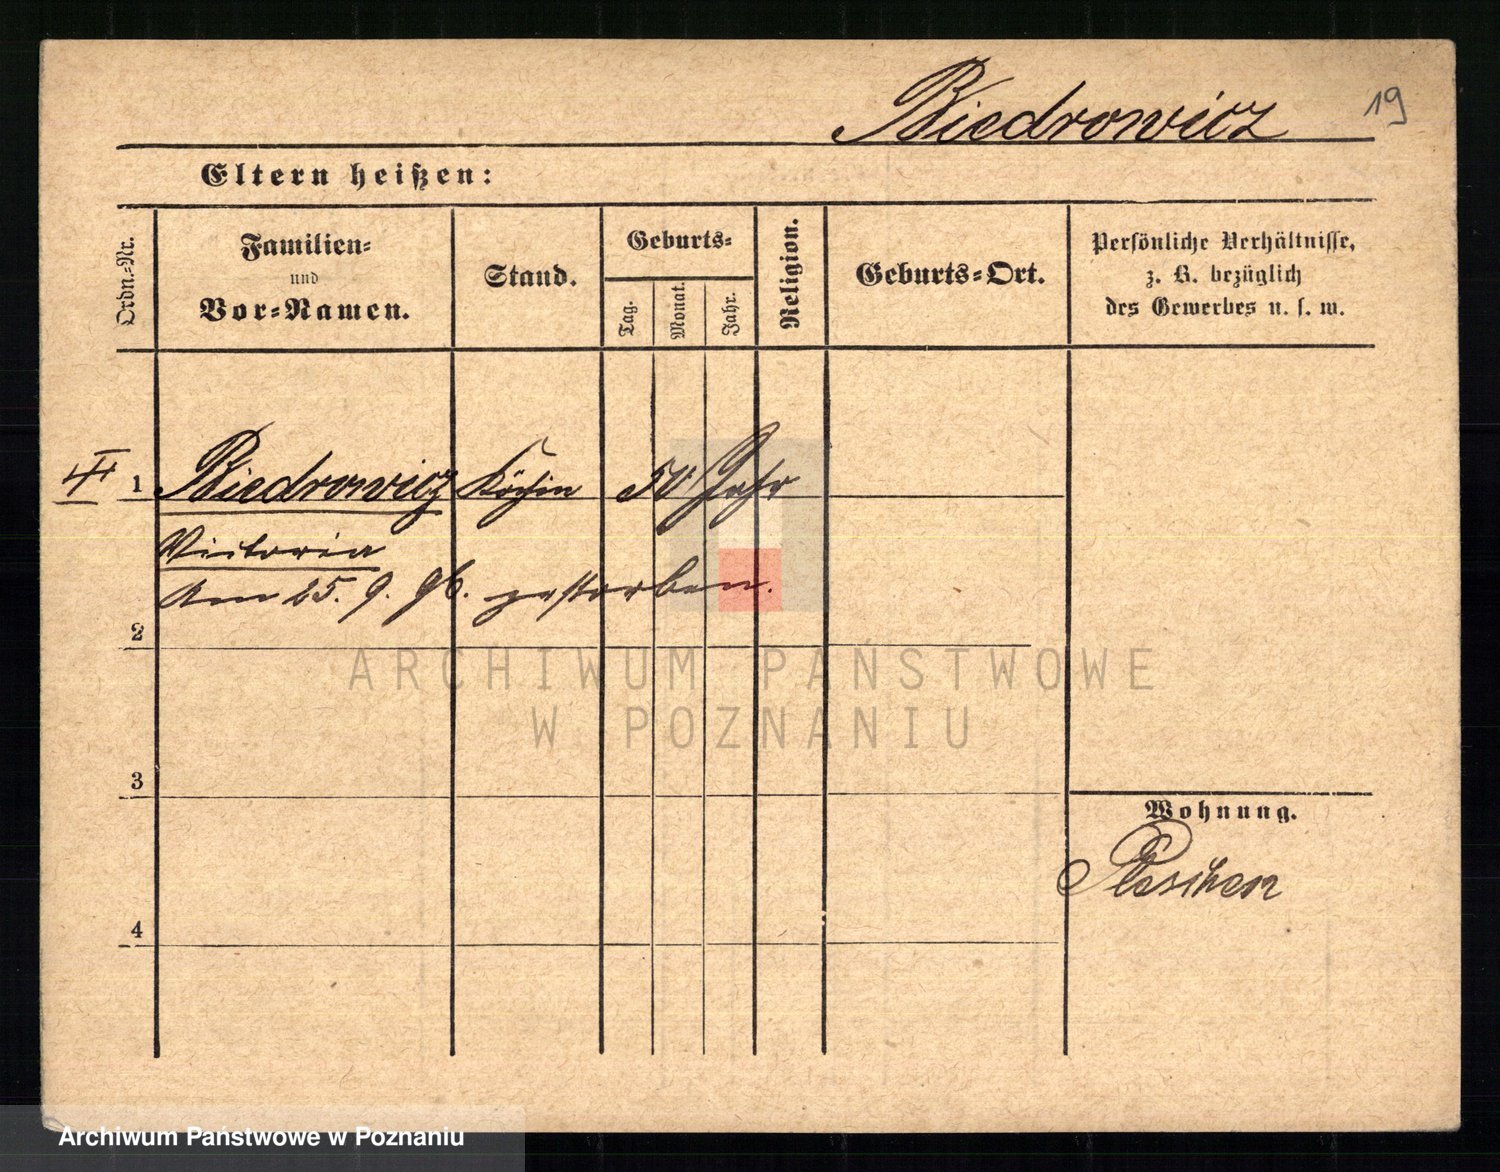 Biedrowicz
19
Eltern heißen:
Ordn.-Nr.
Familien-
und
Vor-Namen.
Stand.
Geburts-
Tag.
Monat.
Jahr.
Religion.
Geburts-Ort.
Persönliche Verhältnisse,
z. B. bezüglich
des Gewerbes u. s. w.
1 Biedrowicz Köchin 50 Jahr
Victoria
Am 25. 9. 96. gestorben.
2
3
4
Wohnung.
Pleschen
ARCHIWUM PAŃSTWOWE
W POZNANIU
Archiwum Państwowe w Poznaniu